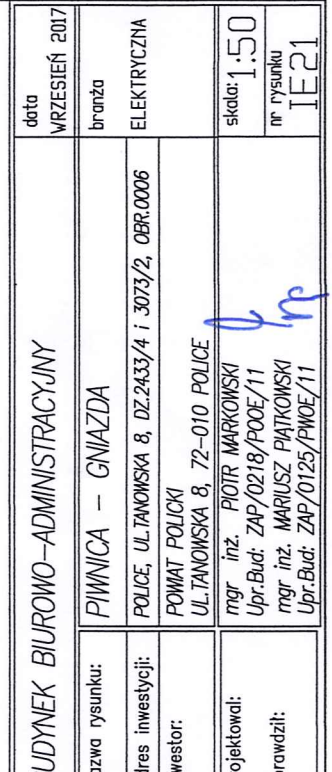 UDYNEK BIUROWO-ADMINISTRACYJNY
data
WRZESIEŃ 2017
azwa rysunku:
PIWNICA - GNIAZDA
branża
ELEKTRYCZNA
dres inwestycji:
POLICE, UL.TANOWSKA 8, DZ.2433/4 i 3073/2, OBR.0006
westor:
POWIAT POLICKI
UL.TANOWSKA 8, 72-010 POLICE
ojektował:
mgr inż. PIOTR MARKOWSKI
Upr.Bud: ZAP/0218/POOE/11
rawdził:
mgr inż. MARIUSZ PIĄTKOWSKI
Upr.Bud: ZAP/0125/PWOE/11
skala: 1:50
nr rysunku
IE21